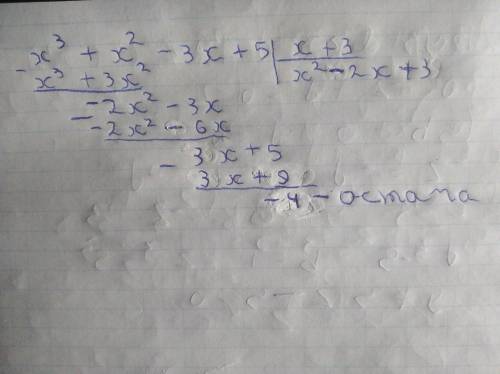 x³ + x² - 3x + 5 | x + 3
- x³ + 3x² | x² - 2x + 3
- 2x² - 3x
- - 2x² - 6x
- 3x + 5
3x + 9
- 4 - остача